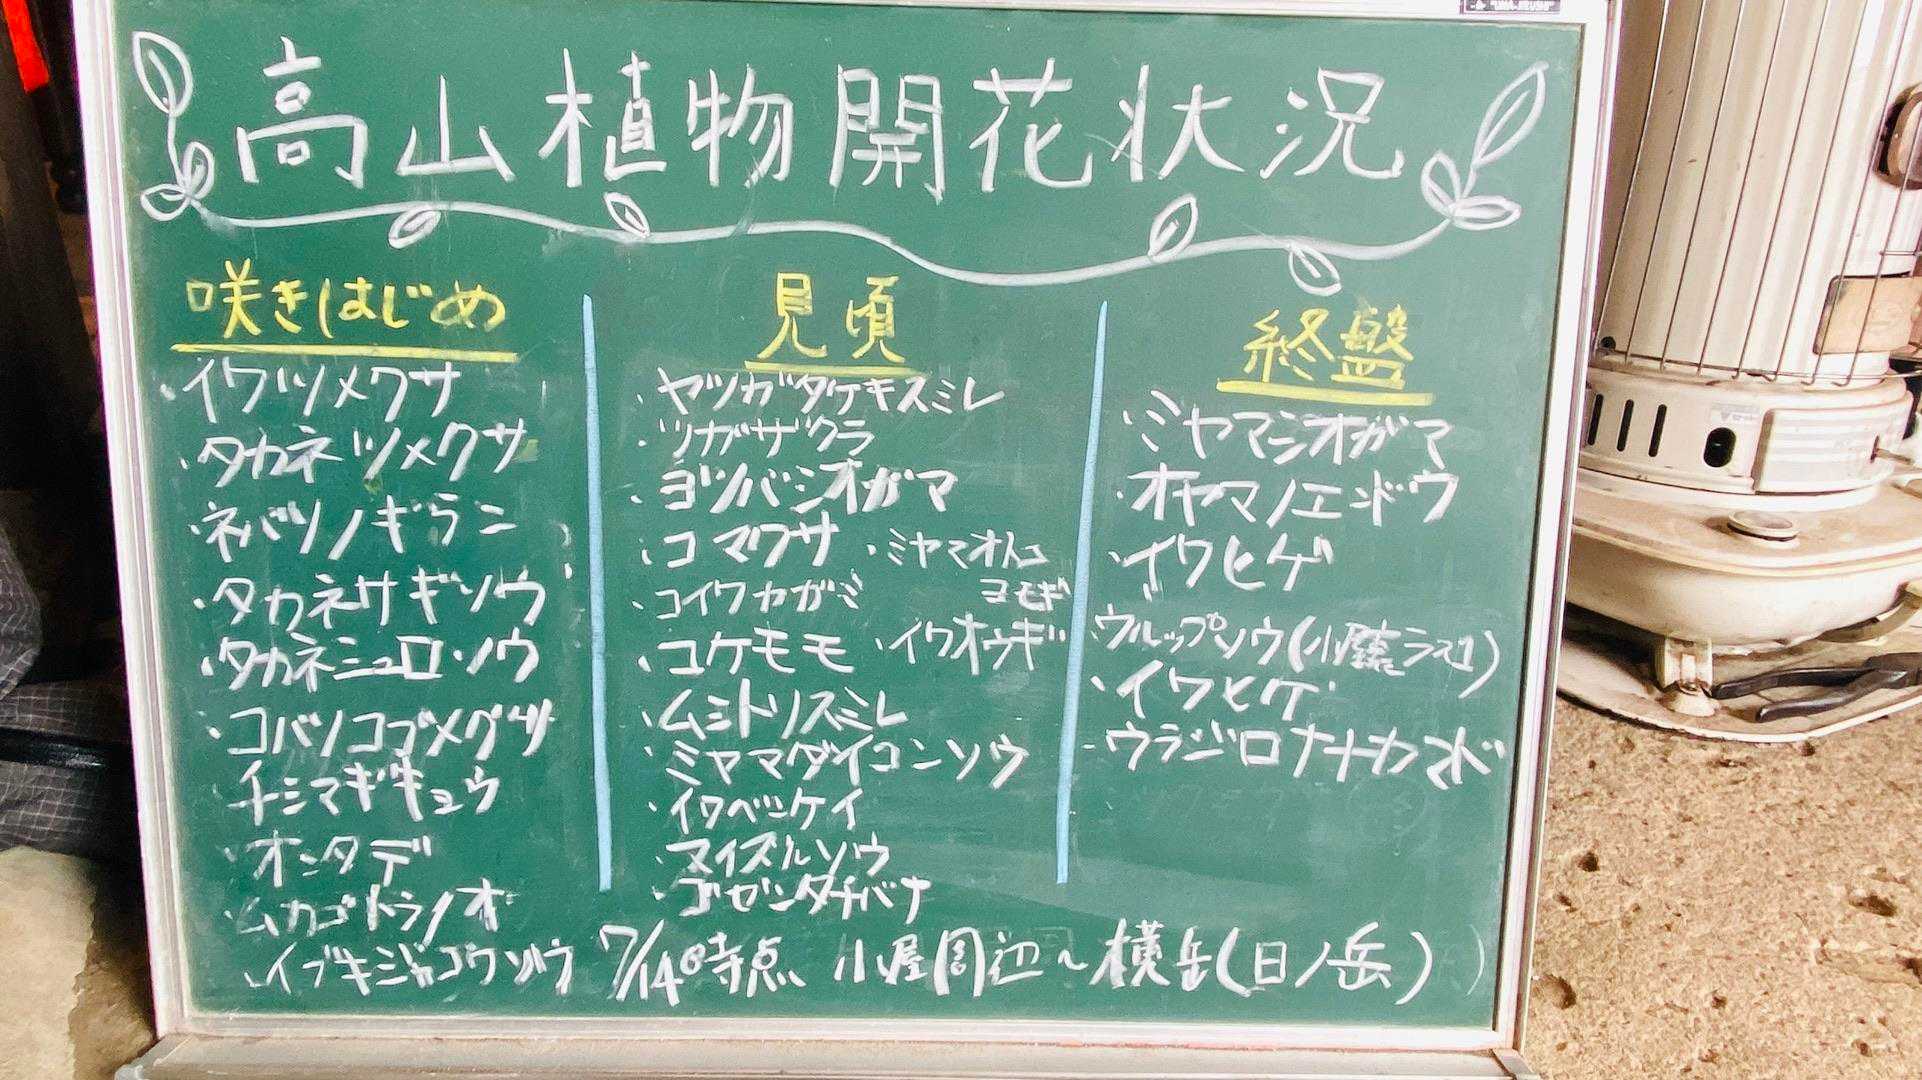 高山植物開花状況
咲きはじめ
・イワツメクサ
・タカネツメクサ
・ネバリノギラン
・タカネサギソウ
・タカネニュロソウ
・コバノコゴメグサ
・チシマギキョウ
・オンタデ
・ムカゴトラノオ
・イブキジャコウソウ
見頃
・ヤツガタケキスミレ
・ツガザクラ
・ヨツバシオガマ
・コマクサ
・ミヤマオトコ
ヨモギ
・コイワカガミ
・コケモモ
・イワオウギ
・ムシトリスミレ
・ミヤマダイコンソウ
・イワベンケイ
・マイヅルソウ
・ゴゼンタチバナ
終盤
・ミヤマシオガマ
・オヤマノエンドウ
・イワヒゲ
・ウルップソウ(小屋裏
・イワヒゲ
・ウラジロナナカマド
7/14時点 小屋周辺~横岳(日ノ岳)